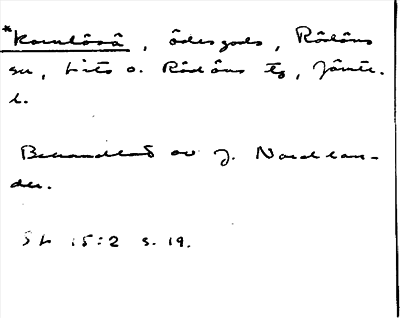 *Kornlöså, ödesgods, Rödöns
sn, Lits o. Rödöns tg, Jämtl.
l.
Behandlat av J. Nordlan-
der.
SL 15:2 s. 19.